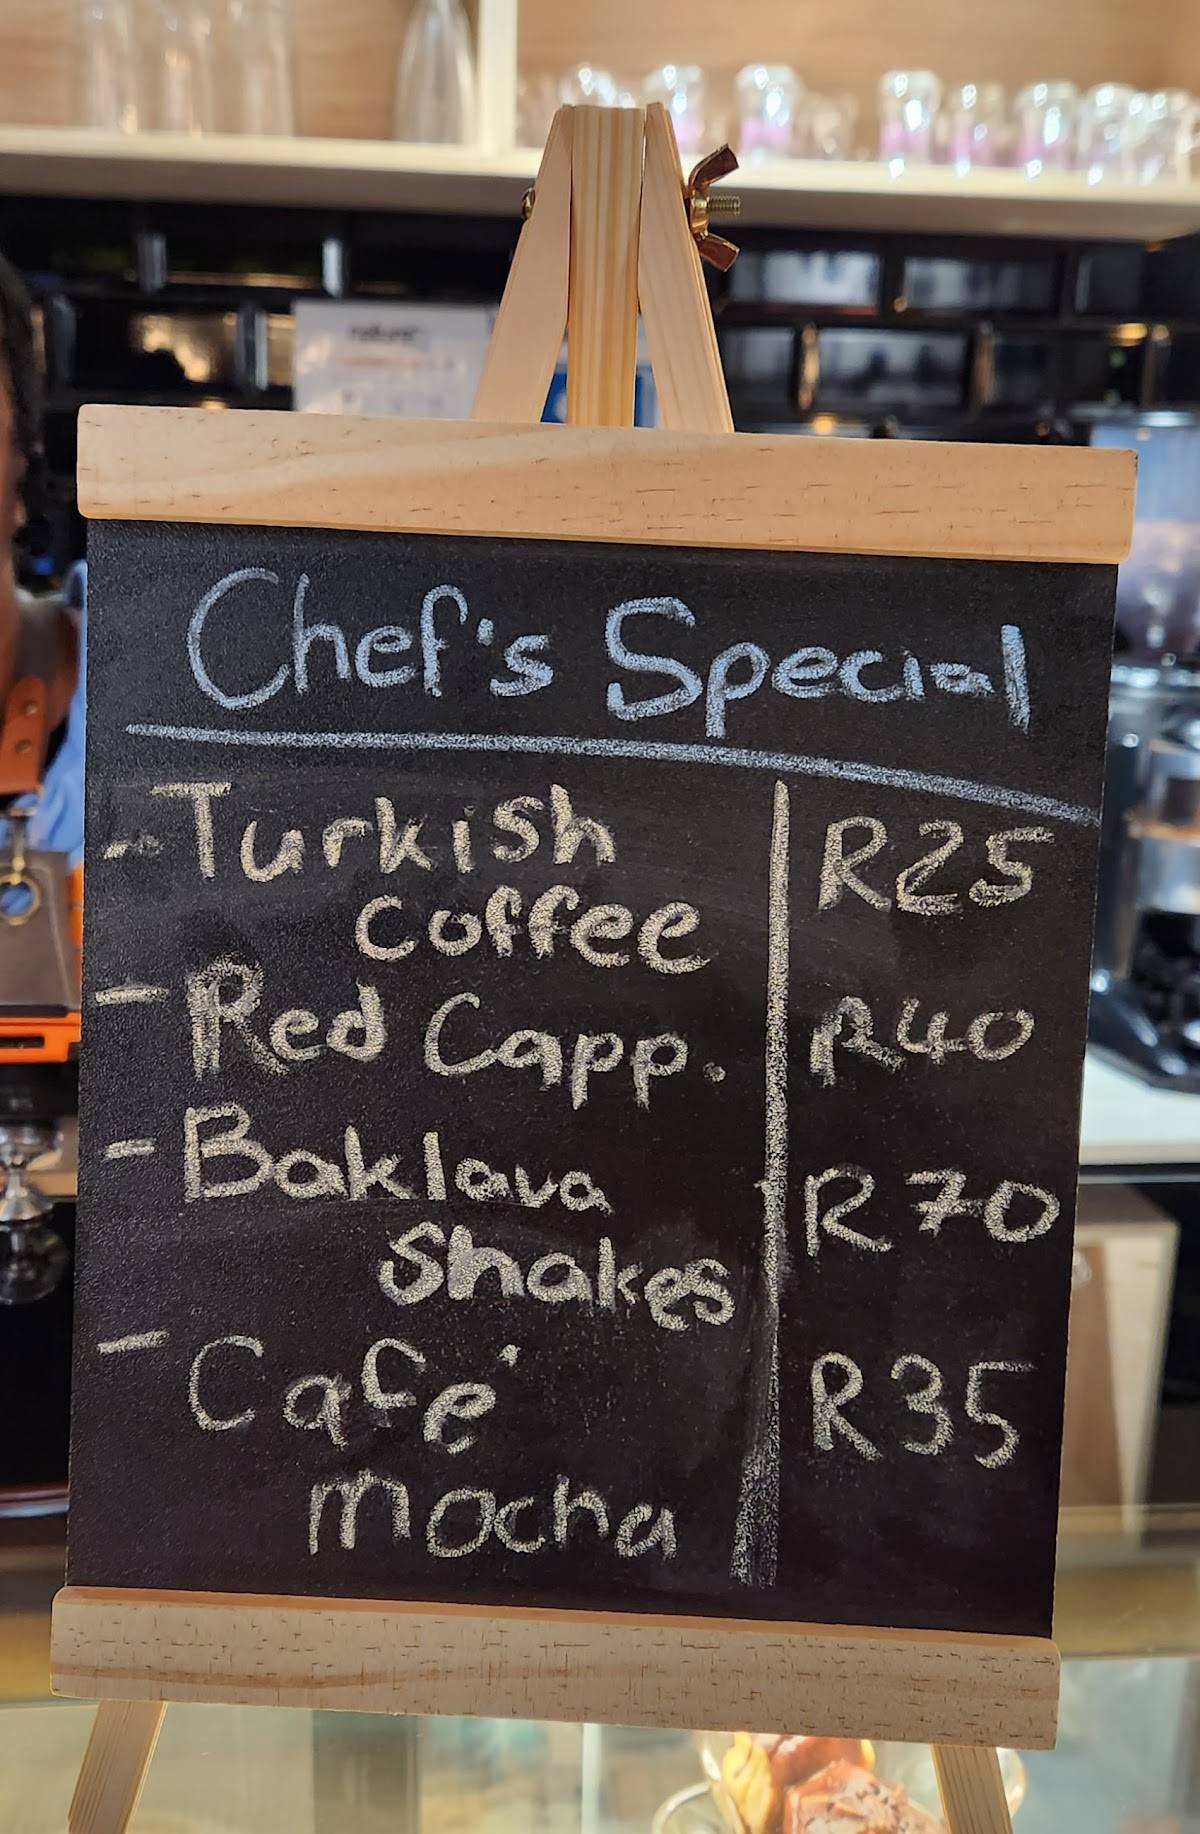 Chef's Special
- Turkish R25
coffee
- Red Capp. R40
- Baklava R70
Shakes
- Café R35
mocha